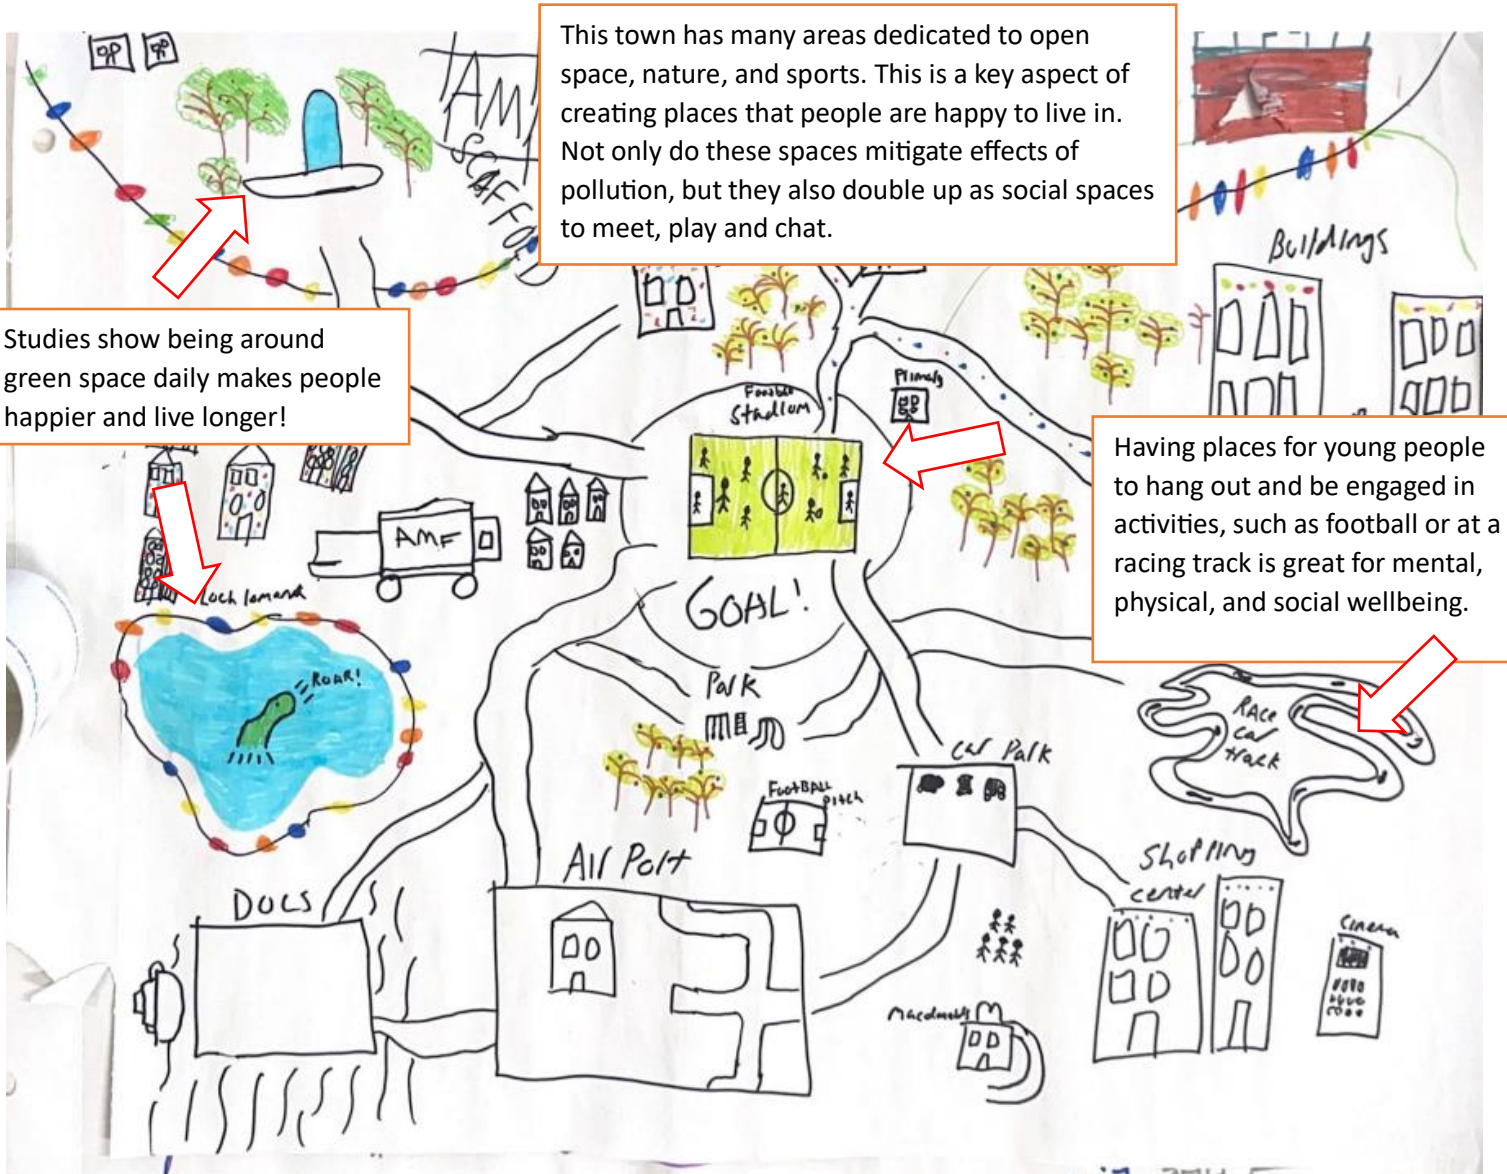 This town has many areas dedicated to open
space, nature, and sports. This is a key aspect of
creating places that people are happy to live in.
Not only do these spaces mitigate effects of
pollution, but they also double up as social spaces
to meet, play and chat.
AM
SCAFFO
Buildings
Studies show being around
green space daily makes people
happier and live longer!
Primary
Stadium
Having places for young people
to hang out and be engaged in
activities, such as football or at a
racing track is great for mental,
physical, and social wellbeing.
AMF
Loch lomand
GOAL!
ROAR!
Park
RACE
car
track
Car Park
FootBALL
pitch
Air Port
Shopping
center
DOCS
cinema